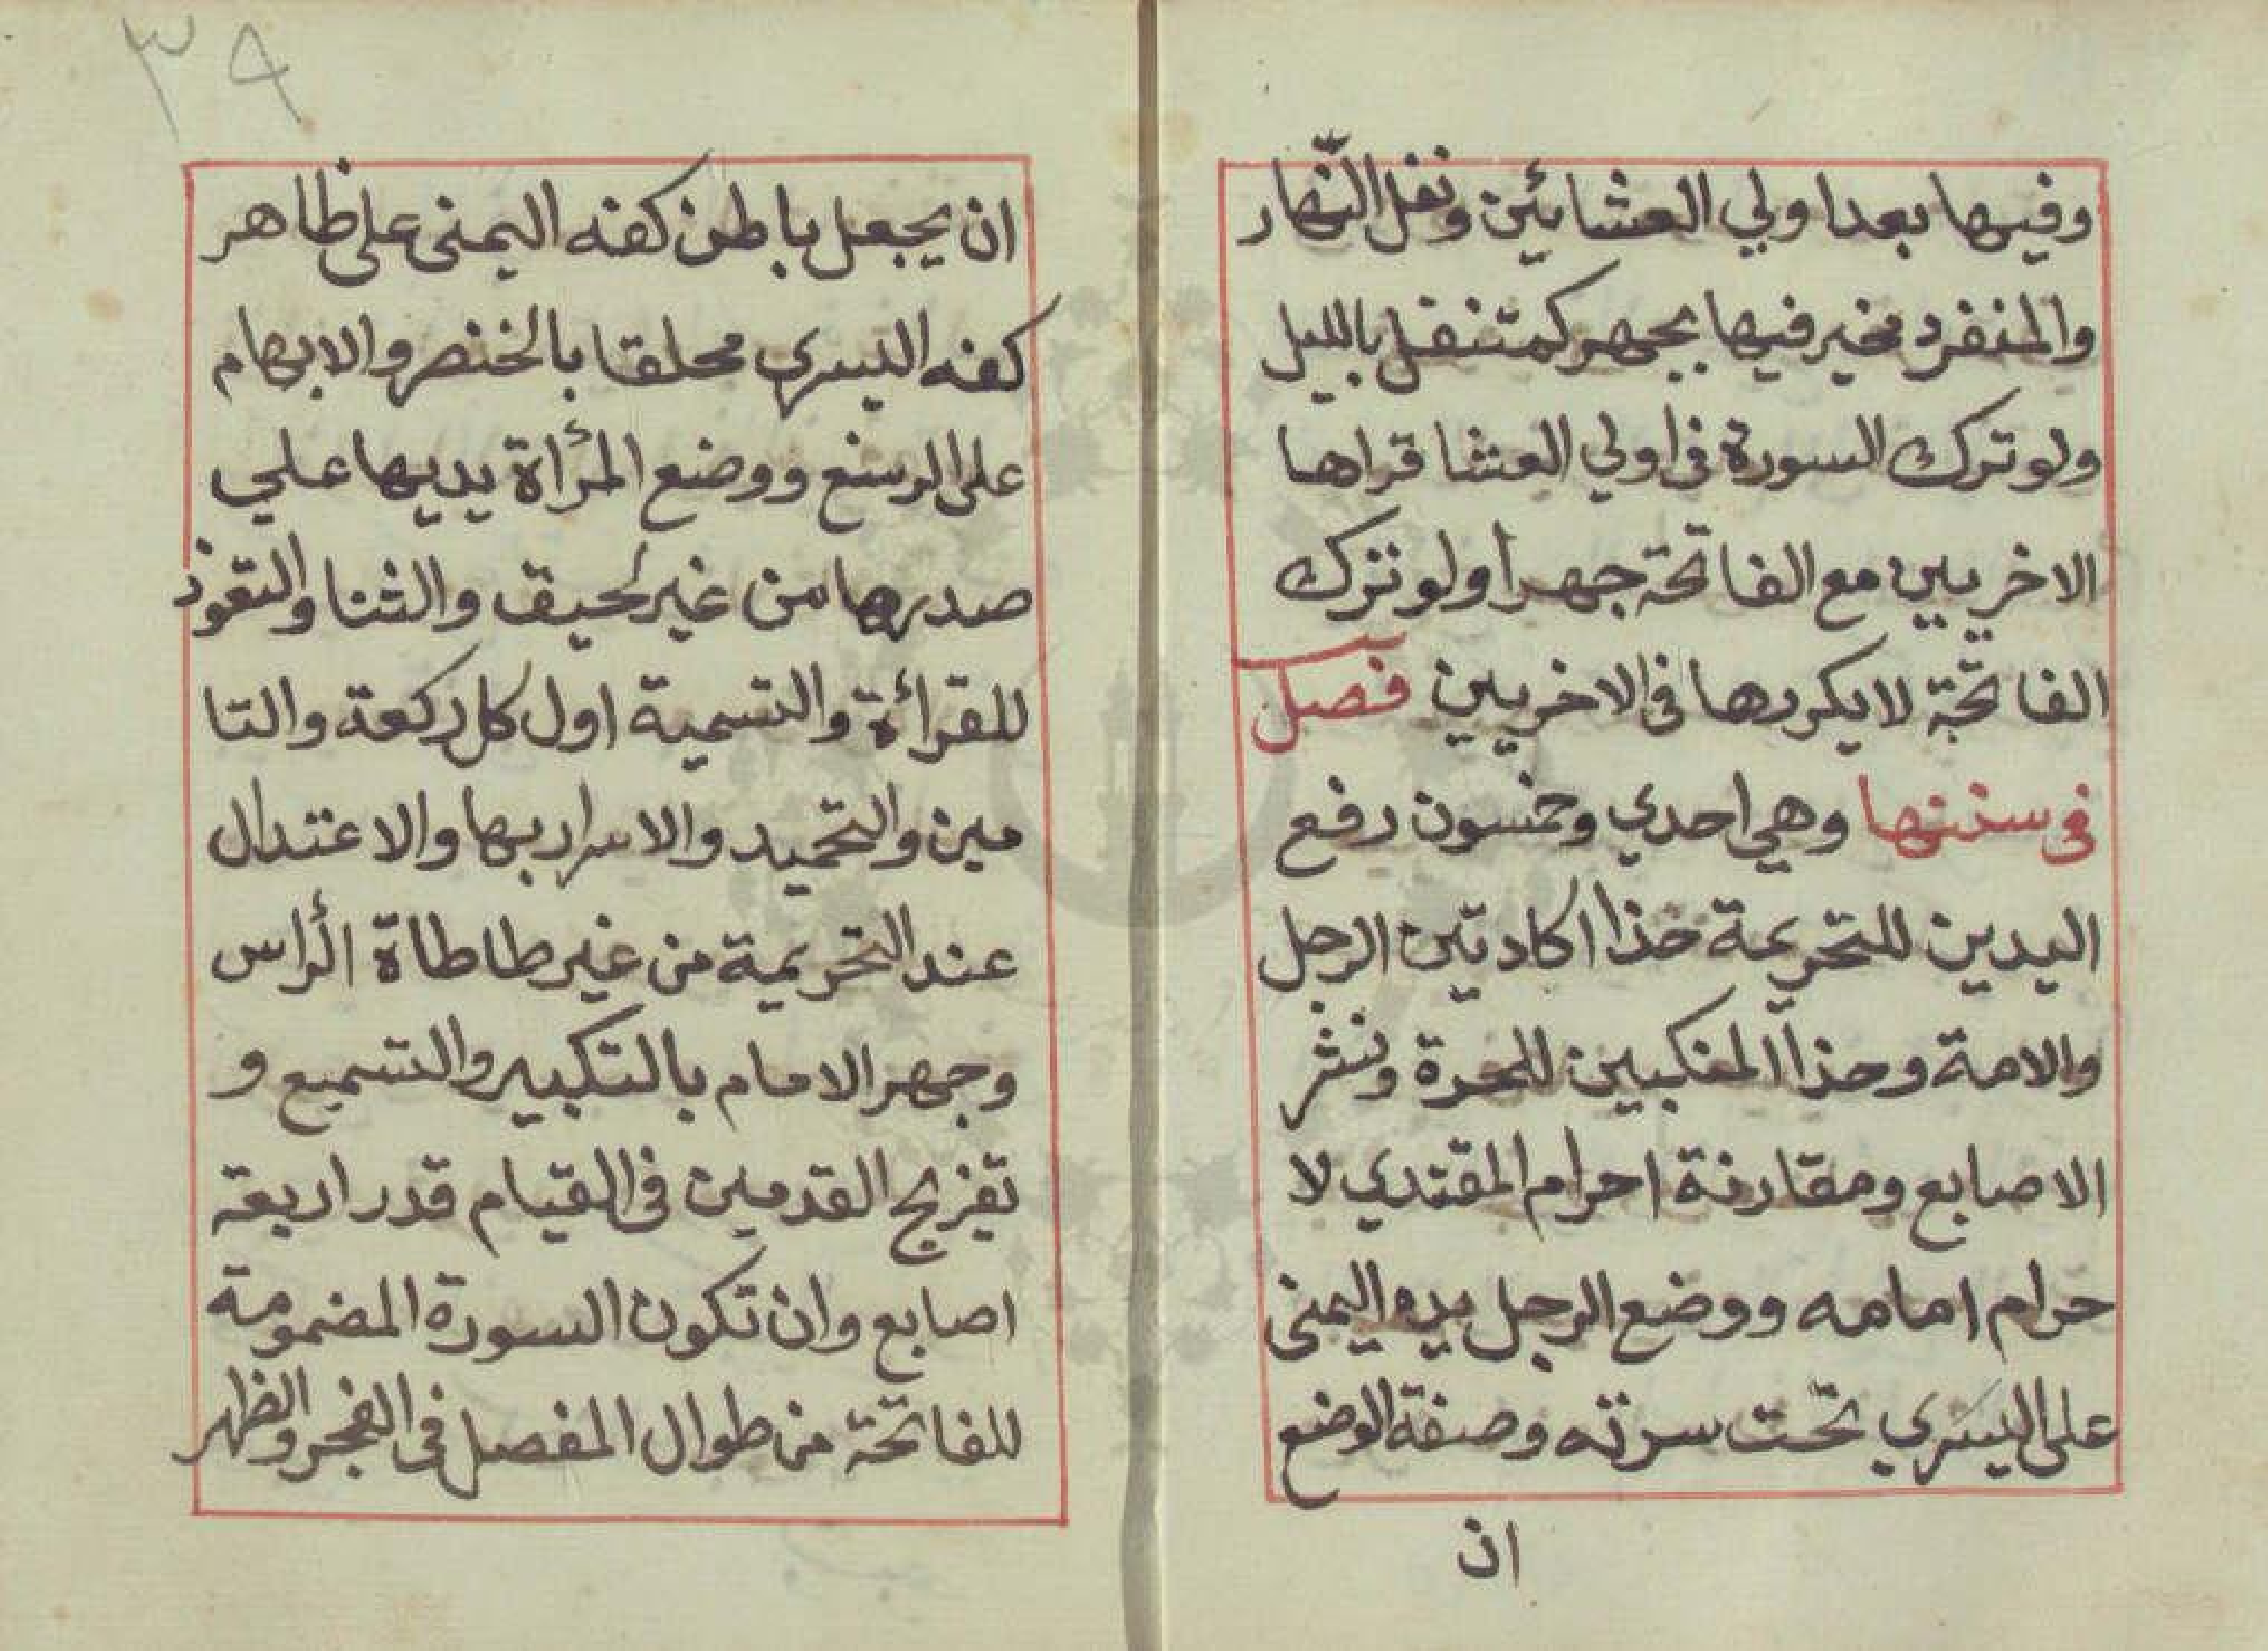 وفيها بعد اولي العشائين ونفل النّهار
والمنفرد مخير فيها يجهر كمتنفل بالليل
ولو ترك السورة في اولي العشا قراها
الاخريين مع الفاتحة جهرا ولو ترك
الفاتحة لا يكررها في الاخريين فصل
في سننها وهي احدي وخمسون رفع
اليدين للتحريمة حذا اكاديين الرجل
والامة وحذا المنكبين للحرة ونشر
الاصابع ومقارنة احرام المقتدي لا
حرام امامه ووضع الرجل يده اليمنى
على اليسري تحت سرته وصفة الوضع
ان
٣٨
ان يجعل باطن كفه اليمنى على ظاهر
كفه اليسرى محلقا بالخنصر والابهام
على الرسغ ووضع المرأاة يديها علي
صدرها من غير لحيق والثنا والتعوذ
للقرأءة والتسمية اول كل ركعة والتا
مين والتحميد والاسرار بها والاعتدال
عند التحريمة من غير طاطاة الرأس
وجهر الامام بالتكبير والتسميع و
تفريج القدمين في القيام قدر اربعة
اصابع وان تكون السورة المضمومة
للفاتحة من طوال المفصل في الفجر والظهر